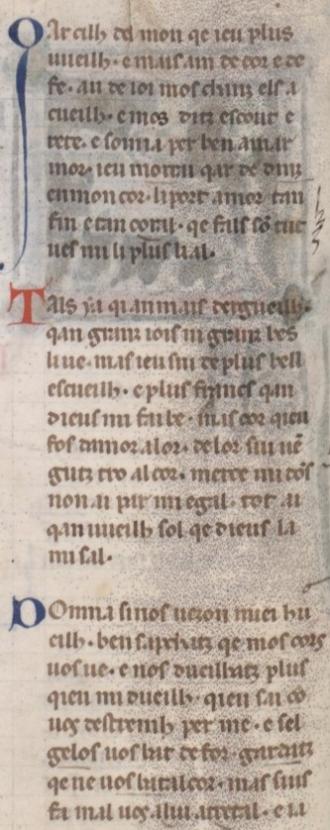 Qar cilh del mon qe ieu plus
vueilh · e mais am de cor e de
fe · au de ioi mos chanz els a
cueilh · e mos ditz escout e
rete · e sonia per ben amar
mor · ieu morrai qar de dinz
en mon cor · li port amor tan
fin e tan coral · qe fals sō tut
ves mi li plus lial ·
Tals ya qi an mais dergueilh ·
qan granz iois ni granz bes
li ue · mas ieu sui de plus bell
escueilh · e plus francs qan
dieus mi fai be · mas cor qieu
fos damor alor · de lor sui uē
gutz tro al cor · merce mi dōs
non ai par ni egal · tot ai
qan uueilh sol qe dieus la
mi sal ·
Domna si nos uezon miei hu
eilh · ben sapchatz qe mos cors
uos ue · e nos dueilhatz plus
qieu mi dueilh · qieu sai co
uos destrenh per me · e sel
gelos uos bat defor · gardatz
qe ne uos batal cor · mas sius
fa mal uos a lui atretal · e ia